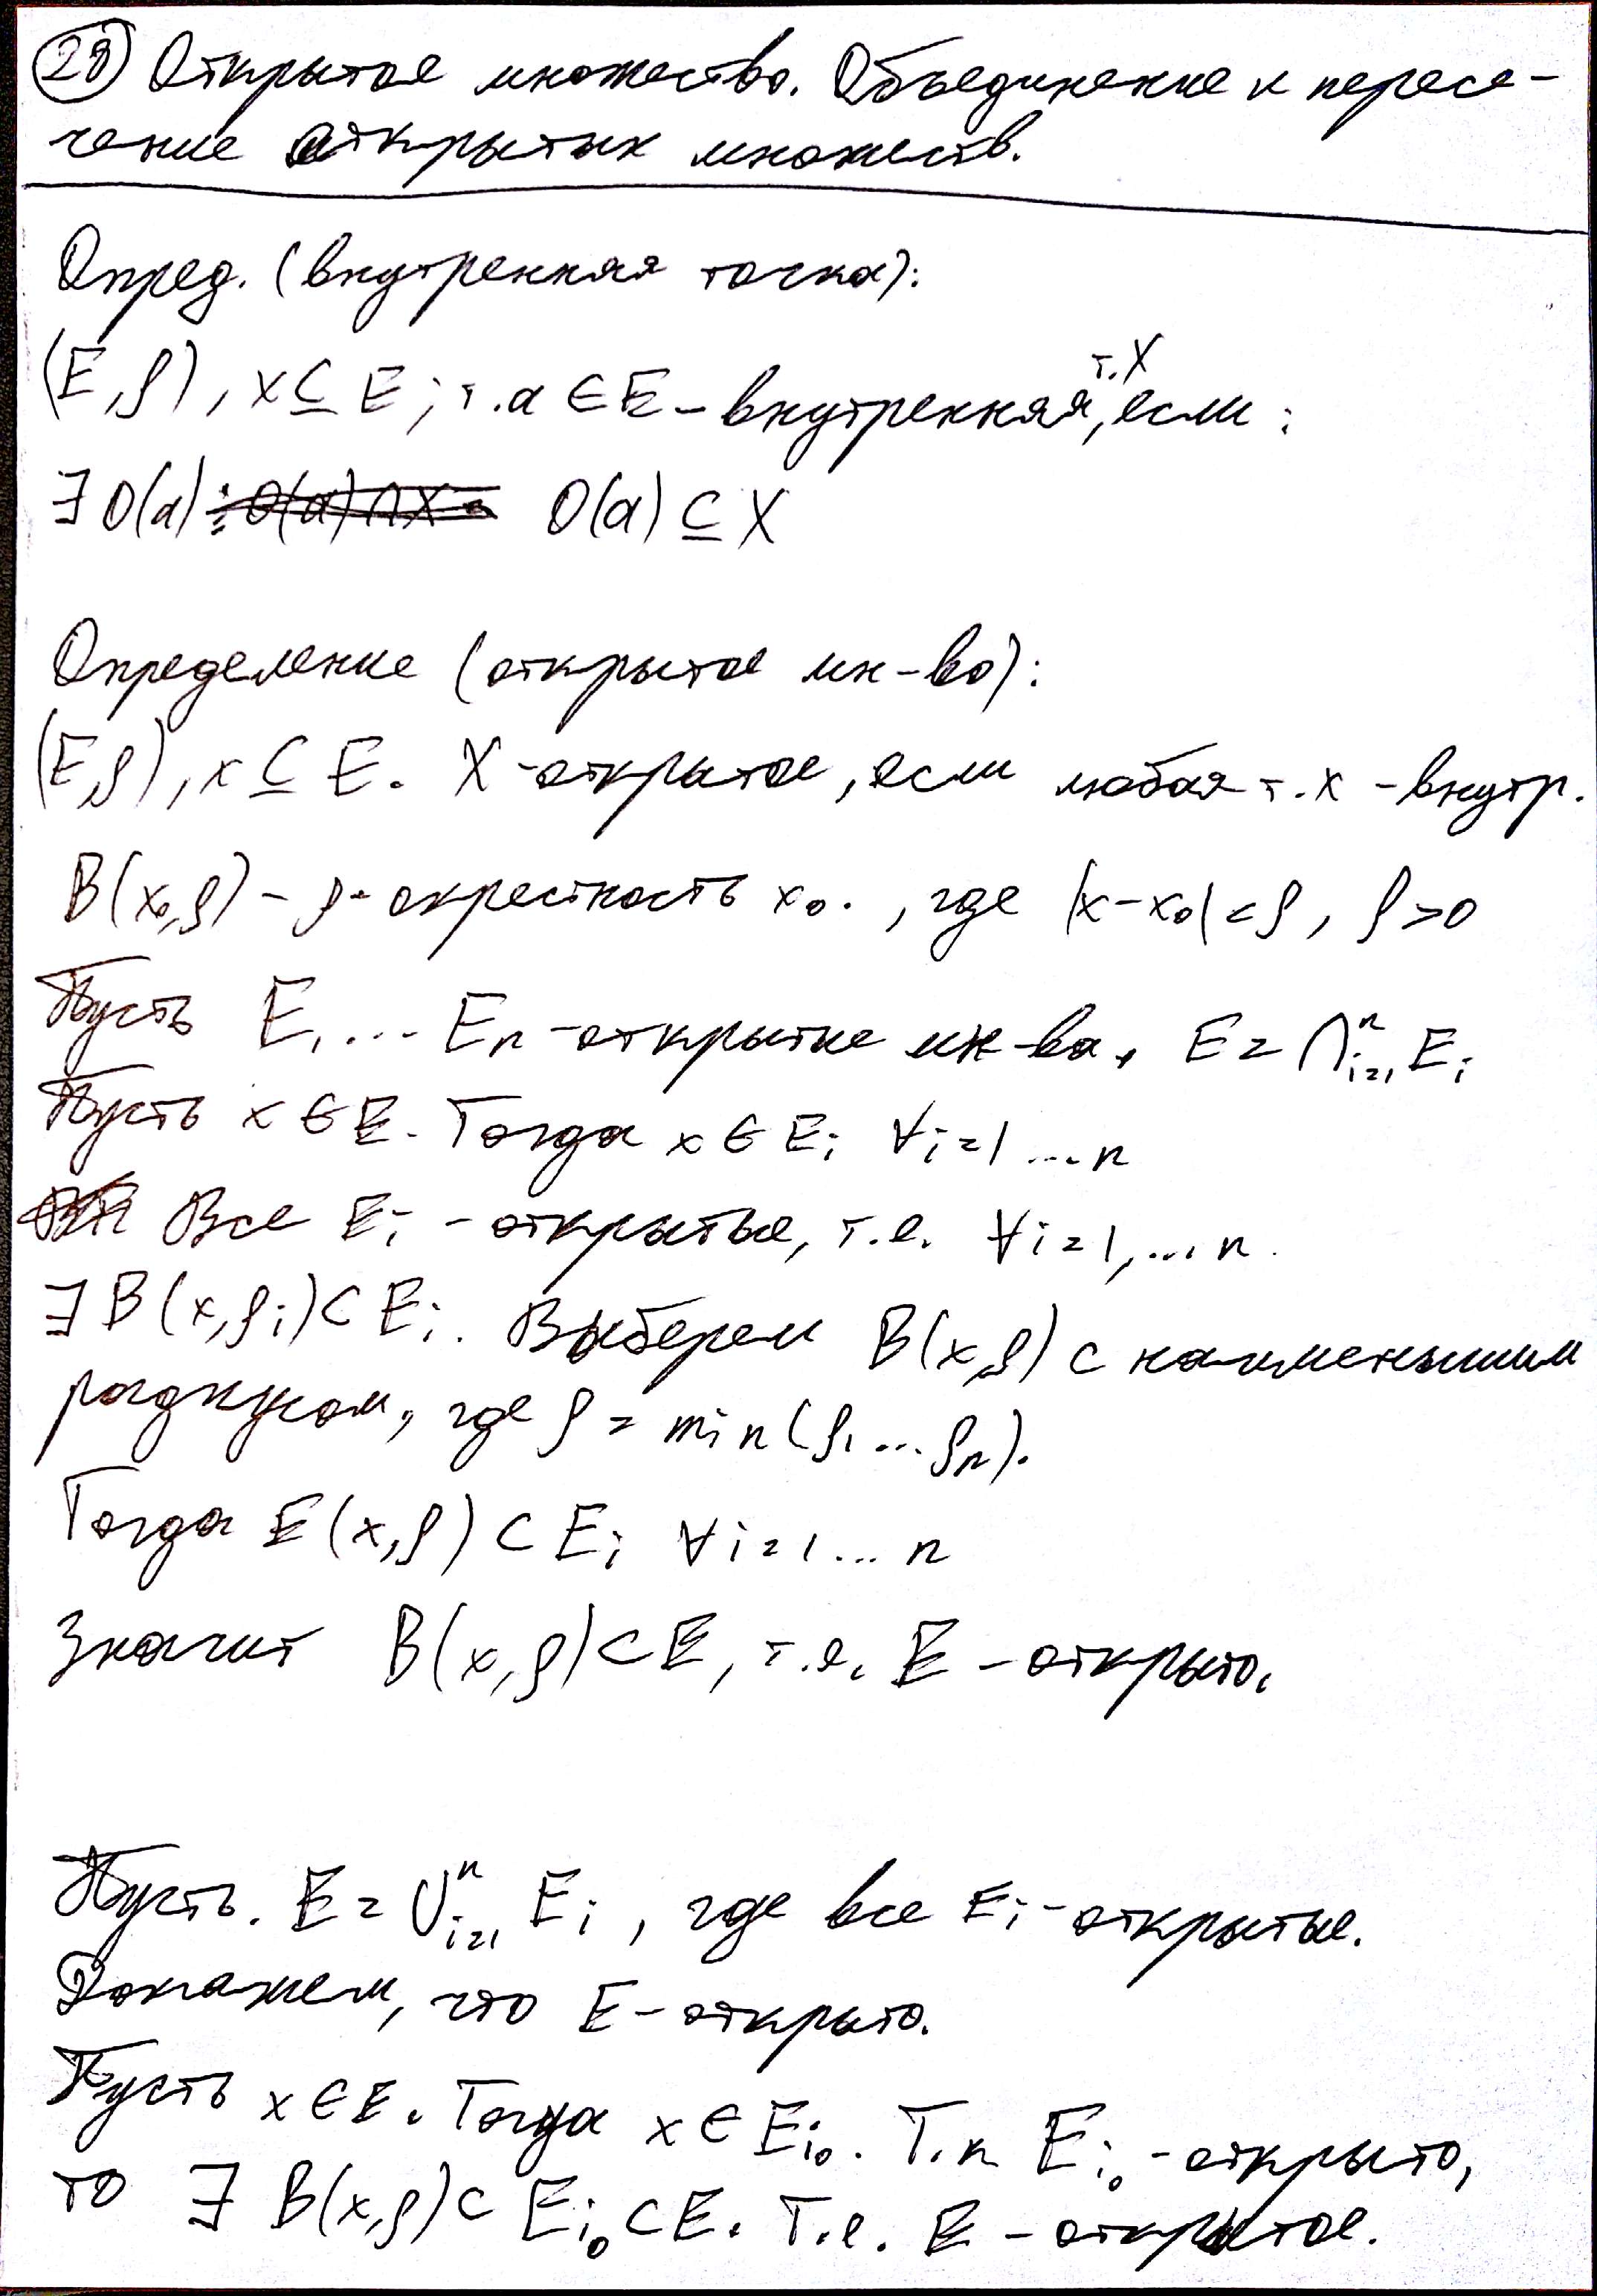 28) Открытое множество. Объединение и пересе-
чение открытых множеств.
Опред. (внутренняя точка):
(E, ρ), X ⊆ E; т. a ∈ E - внутренняя, если:
т. X
∃ O(a) O(a) ⊆ X
Определение (открытое мн-во):
(E, ρ), x ⊆ E. X - открытое, если любая т. x - внутр.
B(x₀, ρ) - ρ - окрестность x₀. , где |x - x₀| < ρ, ρ > 0
Пусть E₁ ... Eₙ - открытые мн-ва, E = ∩ⁿᵢ₌₁ Eᵢ
Пусть x ∈ E. Тогда x ∈ Eᵢ ∀i=1 ... n
Все Eᵢ - открытые, т.е. ∀i=1, ... n.
∃ B(x, ρᵢ) ⊂ Eᵢ. Выберем B(x, ρ) с наименьшим
радиусом, где ρ = min(ρ₁ ... ρₙ).
Тогда E(x, ρ) ⊂ Eᵢ ∀i=1 ... n
Значит B(x, ρ) ⊂ E, т.е. E - открыто.
Пусть. E = ∪ⁿᵢ₌₁ Eᵢ, где все Eᵢ - открытые.
Докажем, что E - открыто.
Пусть x ∈ E. Тогда x ∈ Eᵢ₀. Т.к Eᵢ₀ - открыто,
то ∃ B(x, ρ) ⊂ Eᵢ₀ ⊂ E. Т.е. E - открытое.